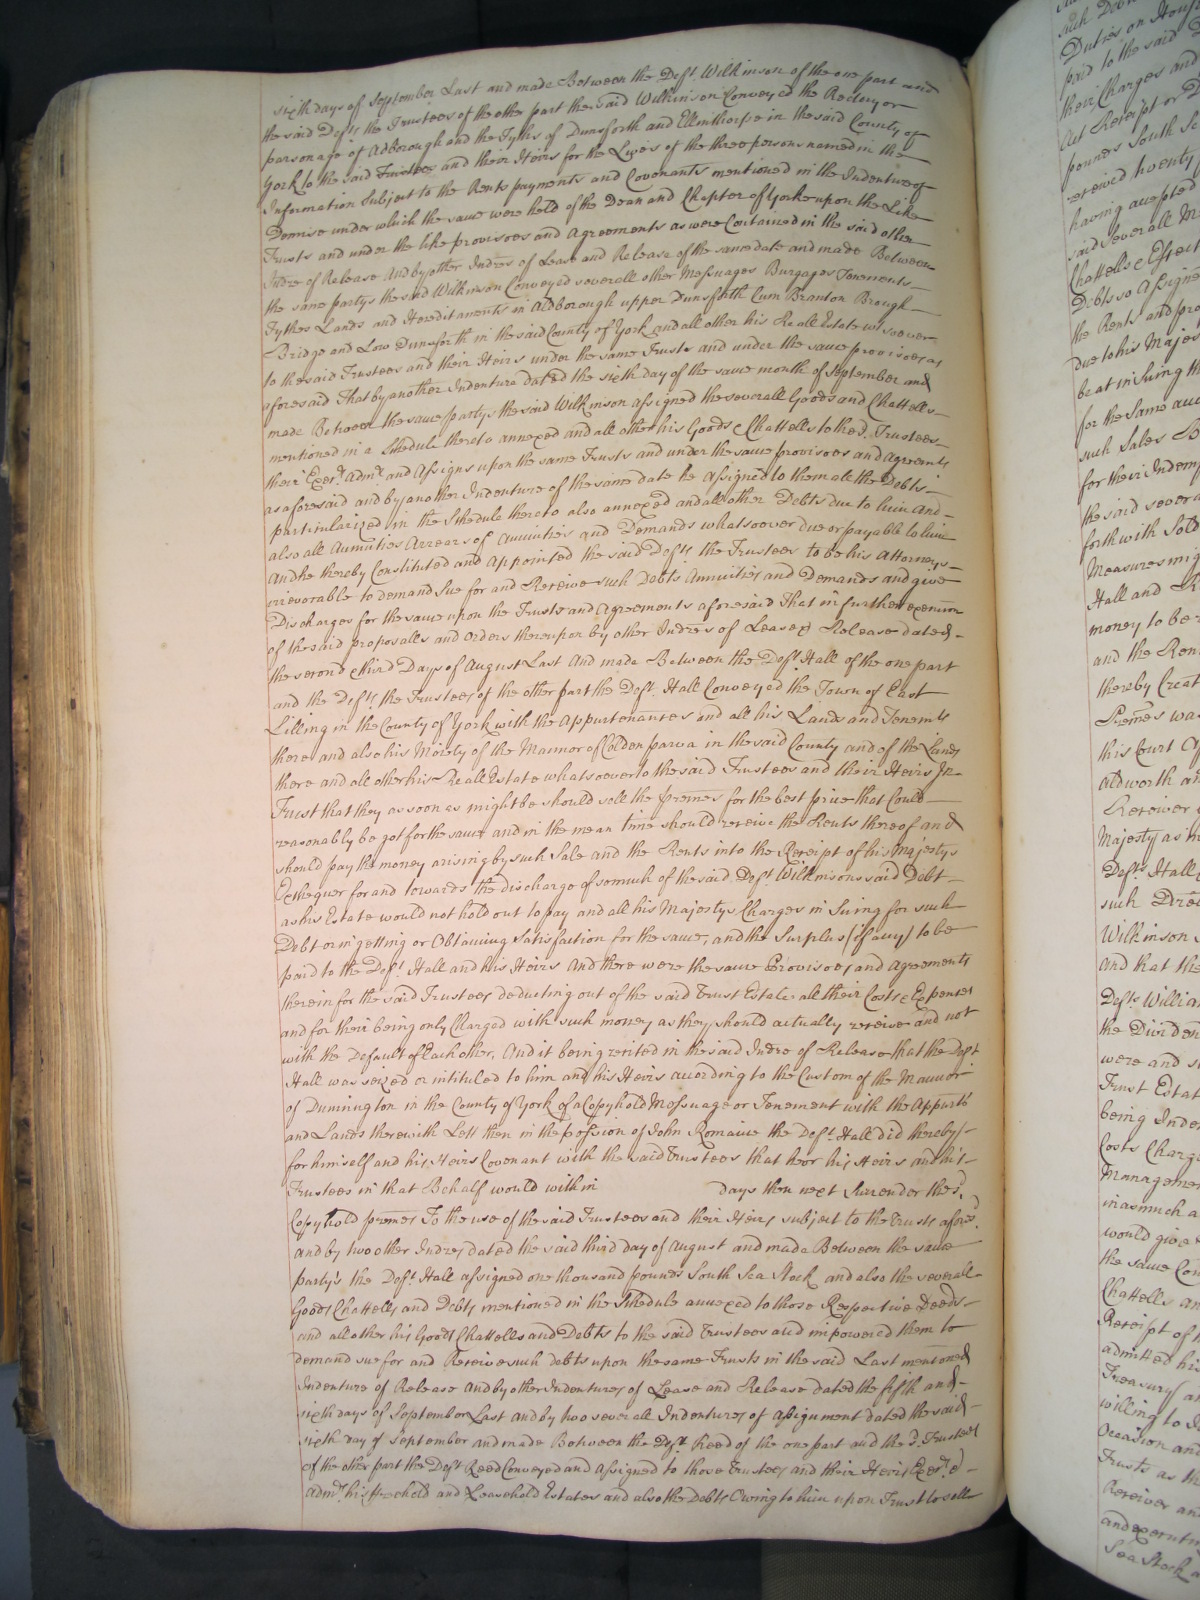 sixth days of September Last and made Between the Deft. Wilkinson of the one part and
the said Defts the Trustees of the other part the said Wilkinson Conveyed the Rectory or
parsonage of Adborough and the Tyths of Dunsforth and Ellinthorpe in the said County of
York to the said Trustees and their Heirs for the Lives of the three persons named in the
Information Subject to the Rents payments and Covenants mentioned in the Indenture of
Demise under which the same were held of the Dean and Chapter of Yorke upon the Like
Trusts and under the like provisoes and Agreements as were Contained in the said other
Indre of Release And by other Indres of Lease and Release of the same date and made Between
the same partys the said Wilkinson Conveyed severall other Messuages Burgages Tenements
Tythes Lands and Hereditaments in Aldborough upper Dunsforth Cum Branton Brough
Bridge and Low Dunsforth in the said County of York and all other his Reall Estate wtsoever
to the said Trustees and their Heirs under the same Trusts and under the same provisoes as
aforesaid That by another Indenture dated the sixth day of the same month of September and
made Between the same partys the said Wilkinson assigned the severall Goods and Chattells
mentioned in a Schedule thereto annexed and all other his Goods & Chattells to the sd. Trustees
their Exrs. Admrs. and Assigns upon the same Trusts and under the same provisoes and agreemts
as aforesaid and by another Indenture of the same date he assigned to them all the Debts
particularized in the Schedule thereto also annexed and all other Debts due to him And
also all Annuities Arrears of Annuities and Demands whatsoever due or payable to him
And he thereby Constituted and Appointed the said Defts the Trustees to be his Attorneys
irrevocable to demand Sue for and Receive such Debts Annuities and Demands and give
Discharges for the same upon the Trusts and Agreements aforesaid That in further execution
of the said proposalls and orders thereupon by other Indres of Lease & Release dated
the second & third Days of August Last And made Between the Deft. Hall of the one part
and the Defts the Trustees of the other part the Deft. Hall Conveyed the Town of East
Lilling in the County of York with the Appurtenances and all his Lands and Tenemts
there and also his Moiety of the Mannor of Colden parva in the said County and of the Lands
there and all other his Reall Estate whatsoever to the said Trustees and their Heirs In
Trust that they as soon as might be should sell the premes for the best price that Could
reasonably be got for the same and in the mean time should receive the Rents thereof and
should pay the money arising by such Sale and the Rents into the Receipt of his Majestys
Exchequer for and towards the discharge of so much of the said Deft. Wilkinsons said Debt
as his Estate would not hold out to pay and all his Majestys Charges in Suing for such
Debt or in getting or Obtaining Satisfaction for the same, and the Surplus (if any) to be
paid to the Deft. Hall and his Heirs And there were the same Provisoes and Agreements
therein for the said Trustees deducting out of the said Trust Estate all their Costs & Expences
and for their being only Charged with such money as they should actually receive and not
with the Default of Each other, And it being recited in the said Indre of Release that the Deft
Hall was seized or intituled to him and his Heirs according to the Custom of the Mannor
of Dunnington in the County of York of a Copyhold Messuage or Tenement with the Appurts
and Lands therewith Lett then in the possion of John Romaine the Deft. Hall did thereby
for himself and his Heirs Covenant with the said Trustees that he or his Heirs and his
Trustees in that Behalf would within days then next Surrender the sd.
Copyhold premes To the use of the said Trustees and their Heirs subject to the Trusts aforesd.
and by two other Indres dated the said third day of August and made Between the same
party's the Deft. Hall assigned one thousand pounds South Sea Stock and also the severall
Goods Chattells and Debts mentioned in the Schedule annexed to those Respective Deeds
and all other his Goods Chattells and Debts to the said Trustees and impowered them to
demand sue for and Receive such debts upon the same Trusts in the said Last mentioned
Indenture of Release And by other Indentures of Lease and Release dated the fifth and
sixth days of September Last and by two severall Indentures of Assignment dated the said
sixth day of September and made Between the Deft. Reed of the one part and the sd. Trustees
of the other part the Deft Reed Conveyed and Assigned to those Trustees and their Heirs Exrs. &
Admrs. his freehold and Leasehold Estates and also the Debts Owing to him upon Trust to sell